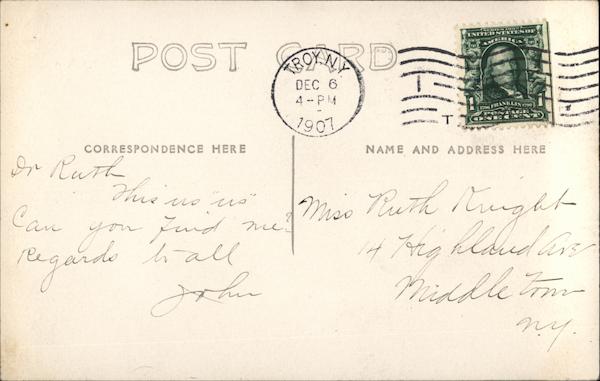 POST CARD
TROY, N.Y.
DEC 6
4-PM
1907
UNITED STATES OF
AMERICA
FRANKLIN
1 1
POSTAGE
ONE CENT
CORRESPONDENCE HERE
NAME AND ADDRESS HERE
Dr Ruth
This is "us"
Can you find me?
Regards to all
John
Miss Ruth Knight
14 Highland Ave
Middletown
N.Y.